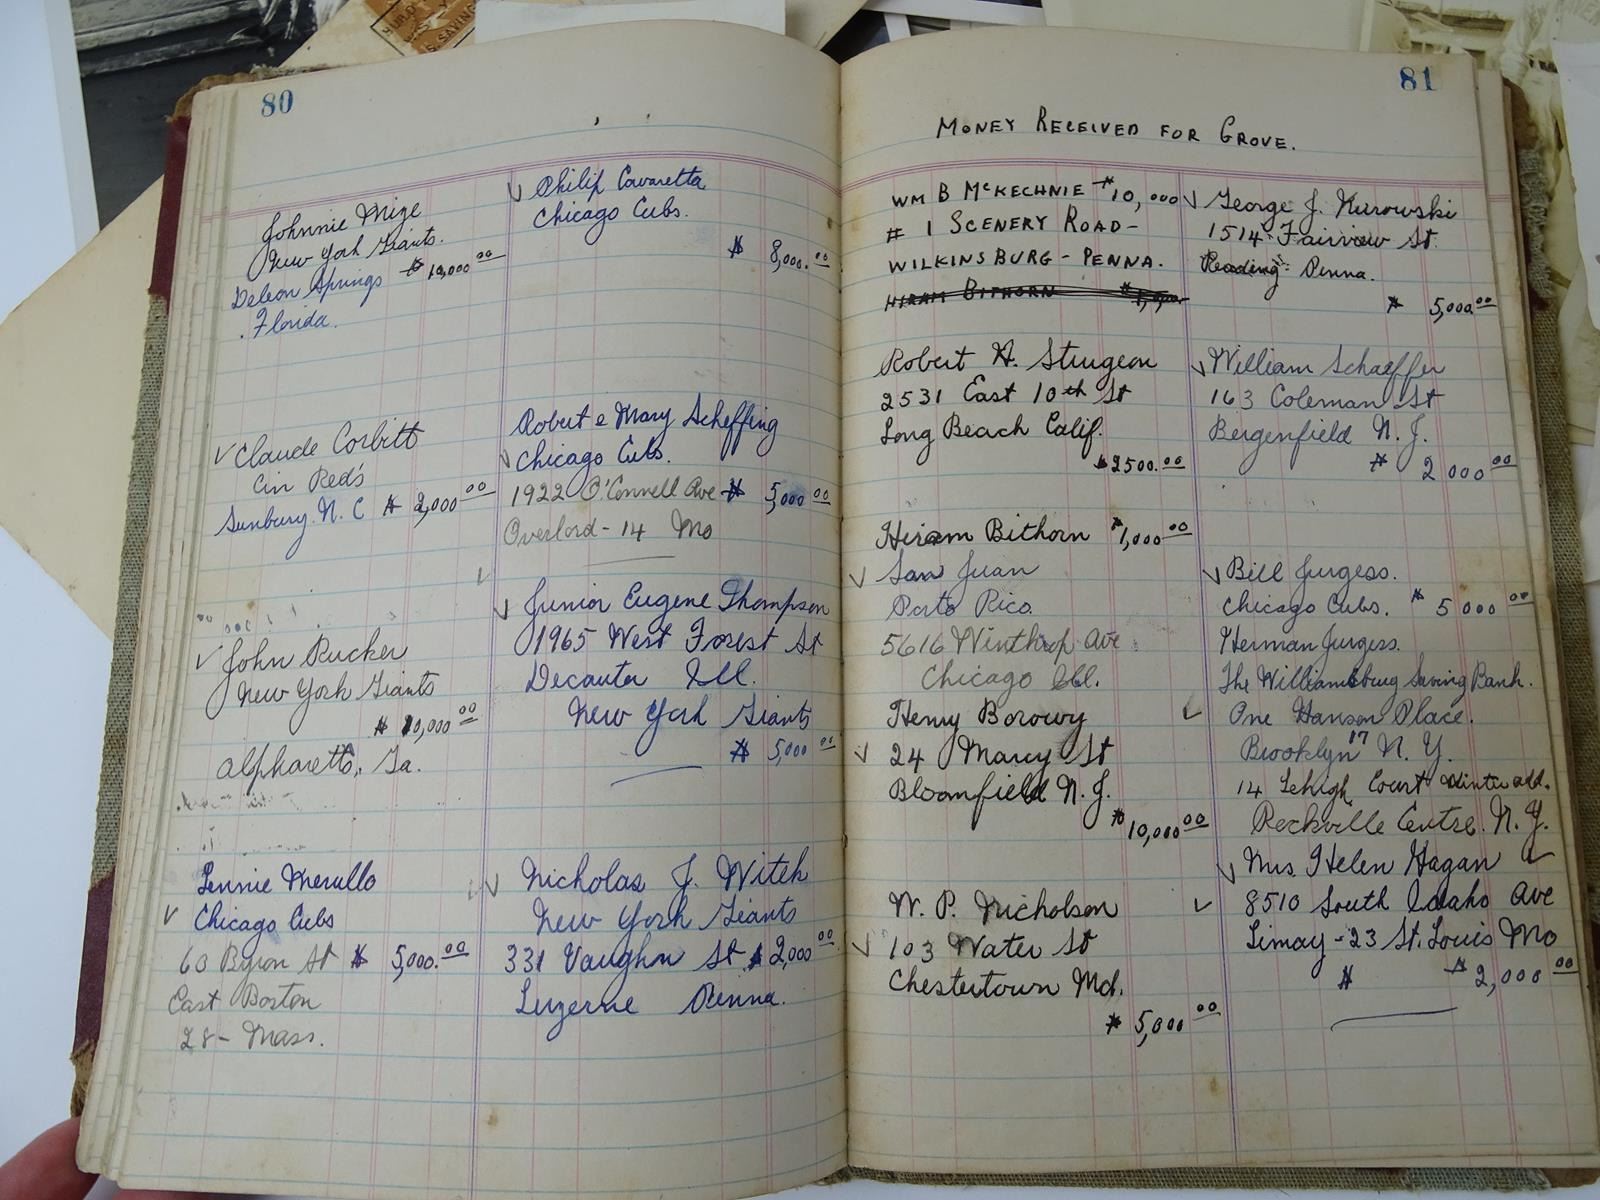 80
Johnnie Mize
New York Giants.
Deleon Springs $ 10,000 00
Florida.
✓ Claude Corbitt
Cin Red's
Sunbury. N. C $ 2,000 00
✓ John Rucker
New York Giants
$ 10,000 00
Alpharetta, Ga.
Lennie Merullo
✓ Chicago Cubs
60 Byron St $ 5,000. 00
East Boston
28 - Mass.
✓ Philip Cavaretta
Chicago Cubs.
$ 8,000. 00
Robert & Mary Scheffing
✓ Chicago Cubs.
1922 O'Connell Ave $ 5,000 00
Overlord - 14 Mo
✓ Junior Eugene Thompson
1965 West Forest St
Decauter Ill.
New York Giants
$ 5,000 00
✓ Nicholas J. Witek
New York Giants
331 Vaughn St $ 2,000 00
Luzerne Penna.
81
MONEY RECEIVED FOR GROVE.
WM B MCKECHNIE $10,000
# 1 SCENERY ROAD -
WILKINSBURG - PENNA.
HIRAM BITHORN
Robert H. Sturgeon
2531 East 10th St
Long Beach Calif.
$2500. 00
Hiram Bithorn $1,000 00
✓ San Juan
Porto Rico
5616 Winthrop Ave
Chicago Ill.
Henry Borowy
✓ 24 Marcy St
Bloomfield N. J.
$ 10,000 00
W. P. Nicholson
✓ 103 Water St
Chestertown Md.
$ 5,000 00
✓ George J. Kurowski
1514 Fairview St.
Reading Penna.
$ 5,000 00
✓ William Schaeffer
163 Coleman St
Bergenfield N. J.
$ 2000 00
✓ Bill Jurgess.
Chicago Cubs. $ 5000 00
Herman Jurgess.
The Williamsburg Saving Bank.
✓ One Hanson Place.
Brooklyn 17 N. Y.
14 Lehigh Court Winter add.
Rockville Centre. N. Y.
✓ Mrs Helen Hagan ✓
✓ 8510 South Idaho Ave
Limay - 23 St. Louis Mo
$ $ 2,000 00